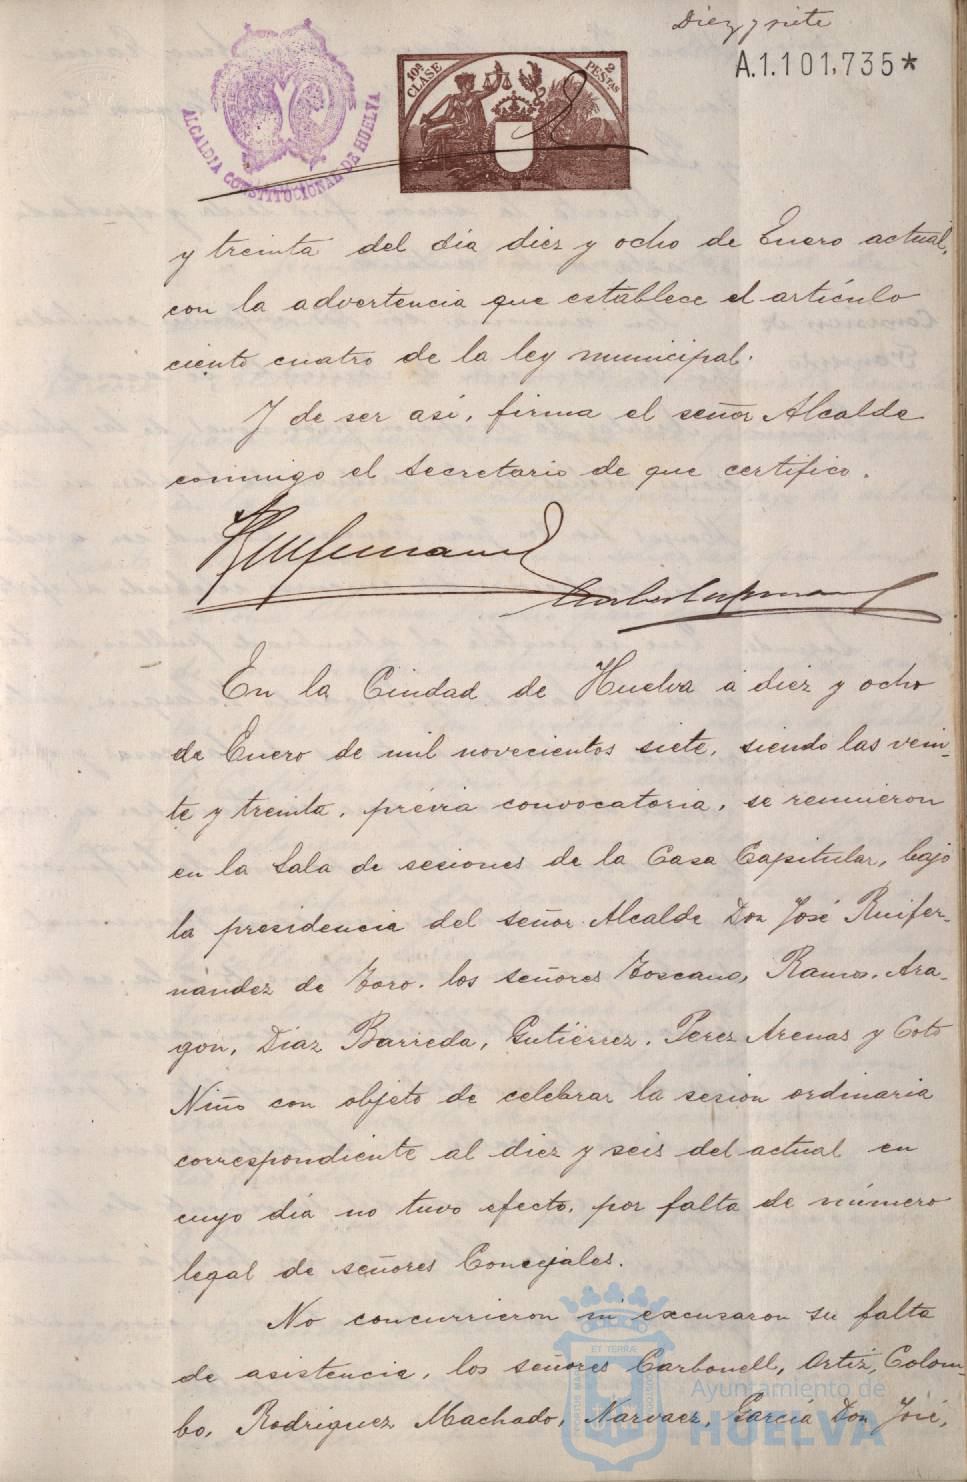 Diez y siete
A.1.101,735*
ALCALDIA CONSTITUCIONAL DE HUELVA
10ª CLASE 2 PESETAS
y treinta del día diez y ocho de Enero actual,
con la advertencia que establece el artículo
ciento cuatro de la ley municipal.
Y de ser así, firma el señor Alcalde
conmigo el Secretario de que certifico.
En la Ciudad de Huelva á diez y ocho
de Enero de mil novecientos siete, siendo las vein-
te y treinta, prévia convocatoria, se reunieron
en la Sala de sesiones de la Casa Capitular, bajo
la presidencia del señor Alcalde Don José Ruifer-
nández de Toro, los señores Toscano, Ramos, Ara-
gón, Díaz Barreda, Gutiérrez, Perez Arenas y Coto
Niño con objeto de celebrar la sesion ordinaria
correspondiente al diez y seis del actual en
cuyo día no tuvo efecto, por falta de número
legal de señores Concejales.
No concurrieron ni excusaron su falta
de asistencia, los señores Carbonell, Ortiz, Colom-
bo, Rodriguez Machado, Narvaez, García Don José,
ET TERRÆ
Ayuntamiento de
HUELVA